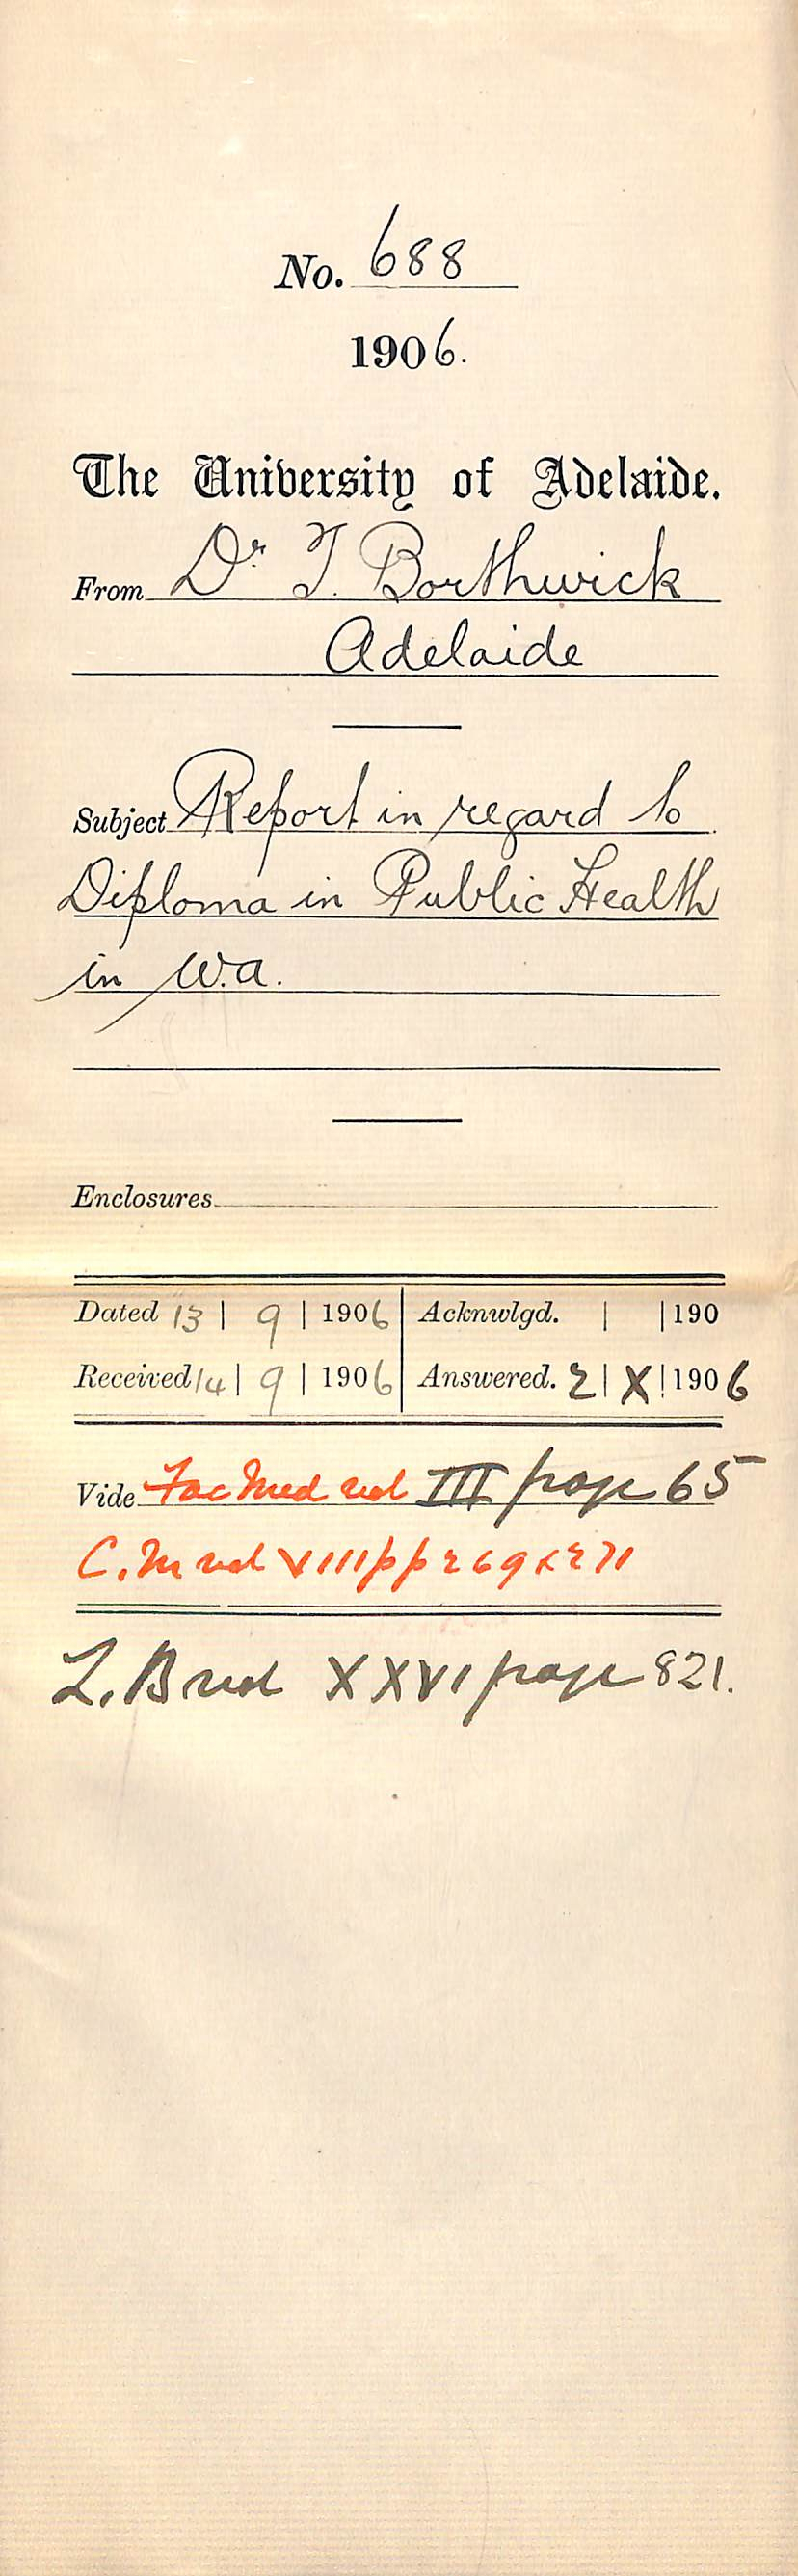 No. 688
1906.
The University of Adelaide.
From Dr. T. Borthwick
Adelaide
Subject Report in regard to
Diploma in Public Health
in W.A.
Enclosures
Dated 13 | 9 | 1906 Acknwlgd. | | 190
Received 14 | 9 | 1906 Answered. 2 | X | 1906
Vide Fac Med vol III page 65
C. M vol VIII pp 269 & 271
L. B vol XXVI page 821.